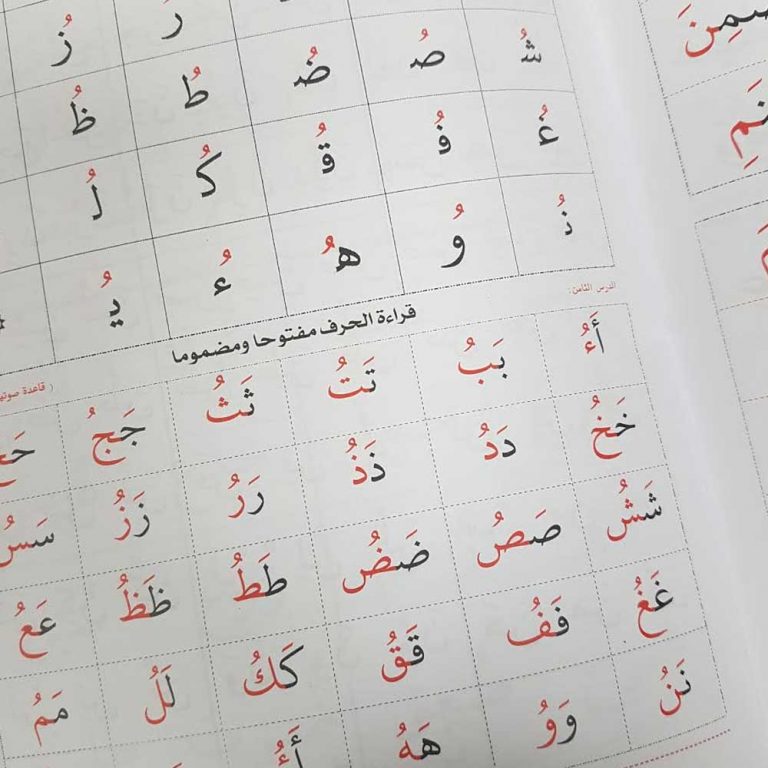 رُ زُ
شُ صُ ضُ طُ ظُ
غُ فُ قُ كُ لُ
نُ وُ هُ ءُ يُ
الدرس الثامن:
قراءة الحرف مفتوحا ومضموما
أَءُ بَبُ تَتُ ثَثُ جَجُ
خَخُ دَدُ ذَذُ رَرُ زَزُ سَسُ
شَشُ صَصُ ضَضُ طَطُ ظَظُ عَعُ
غَغُ فَفُ قَقُ كَكُ لَلُ مَمُ
نَنُ وَوُ هَهُ